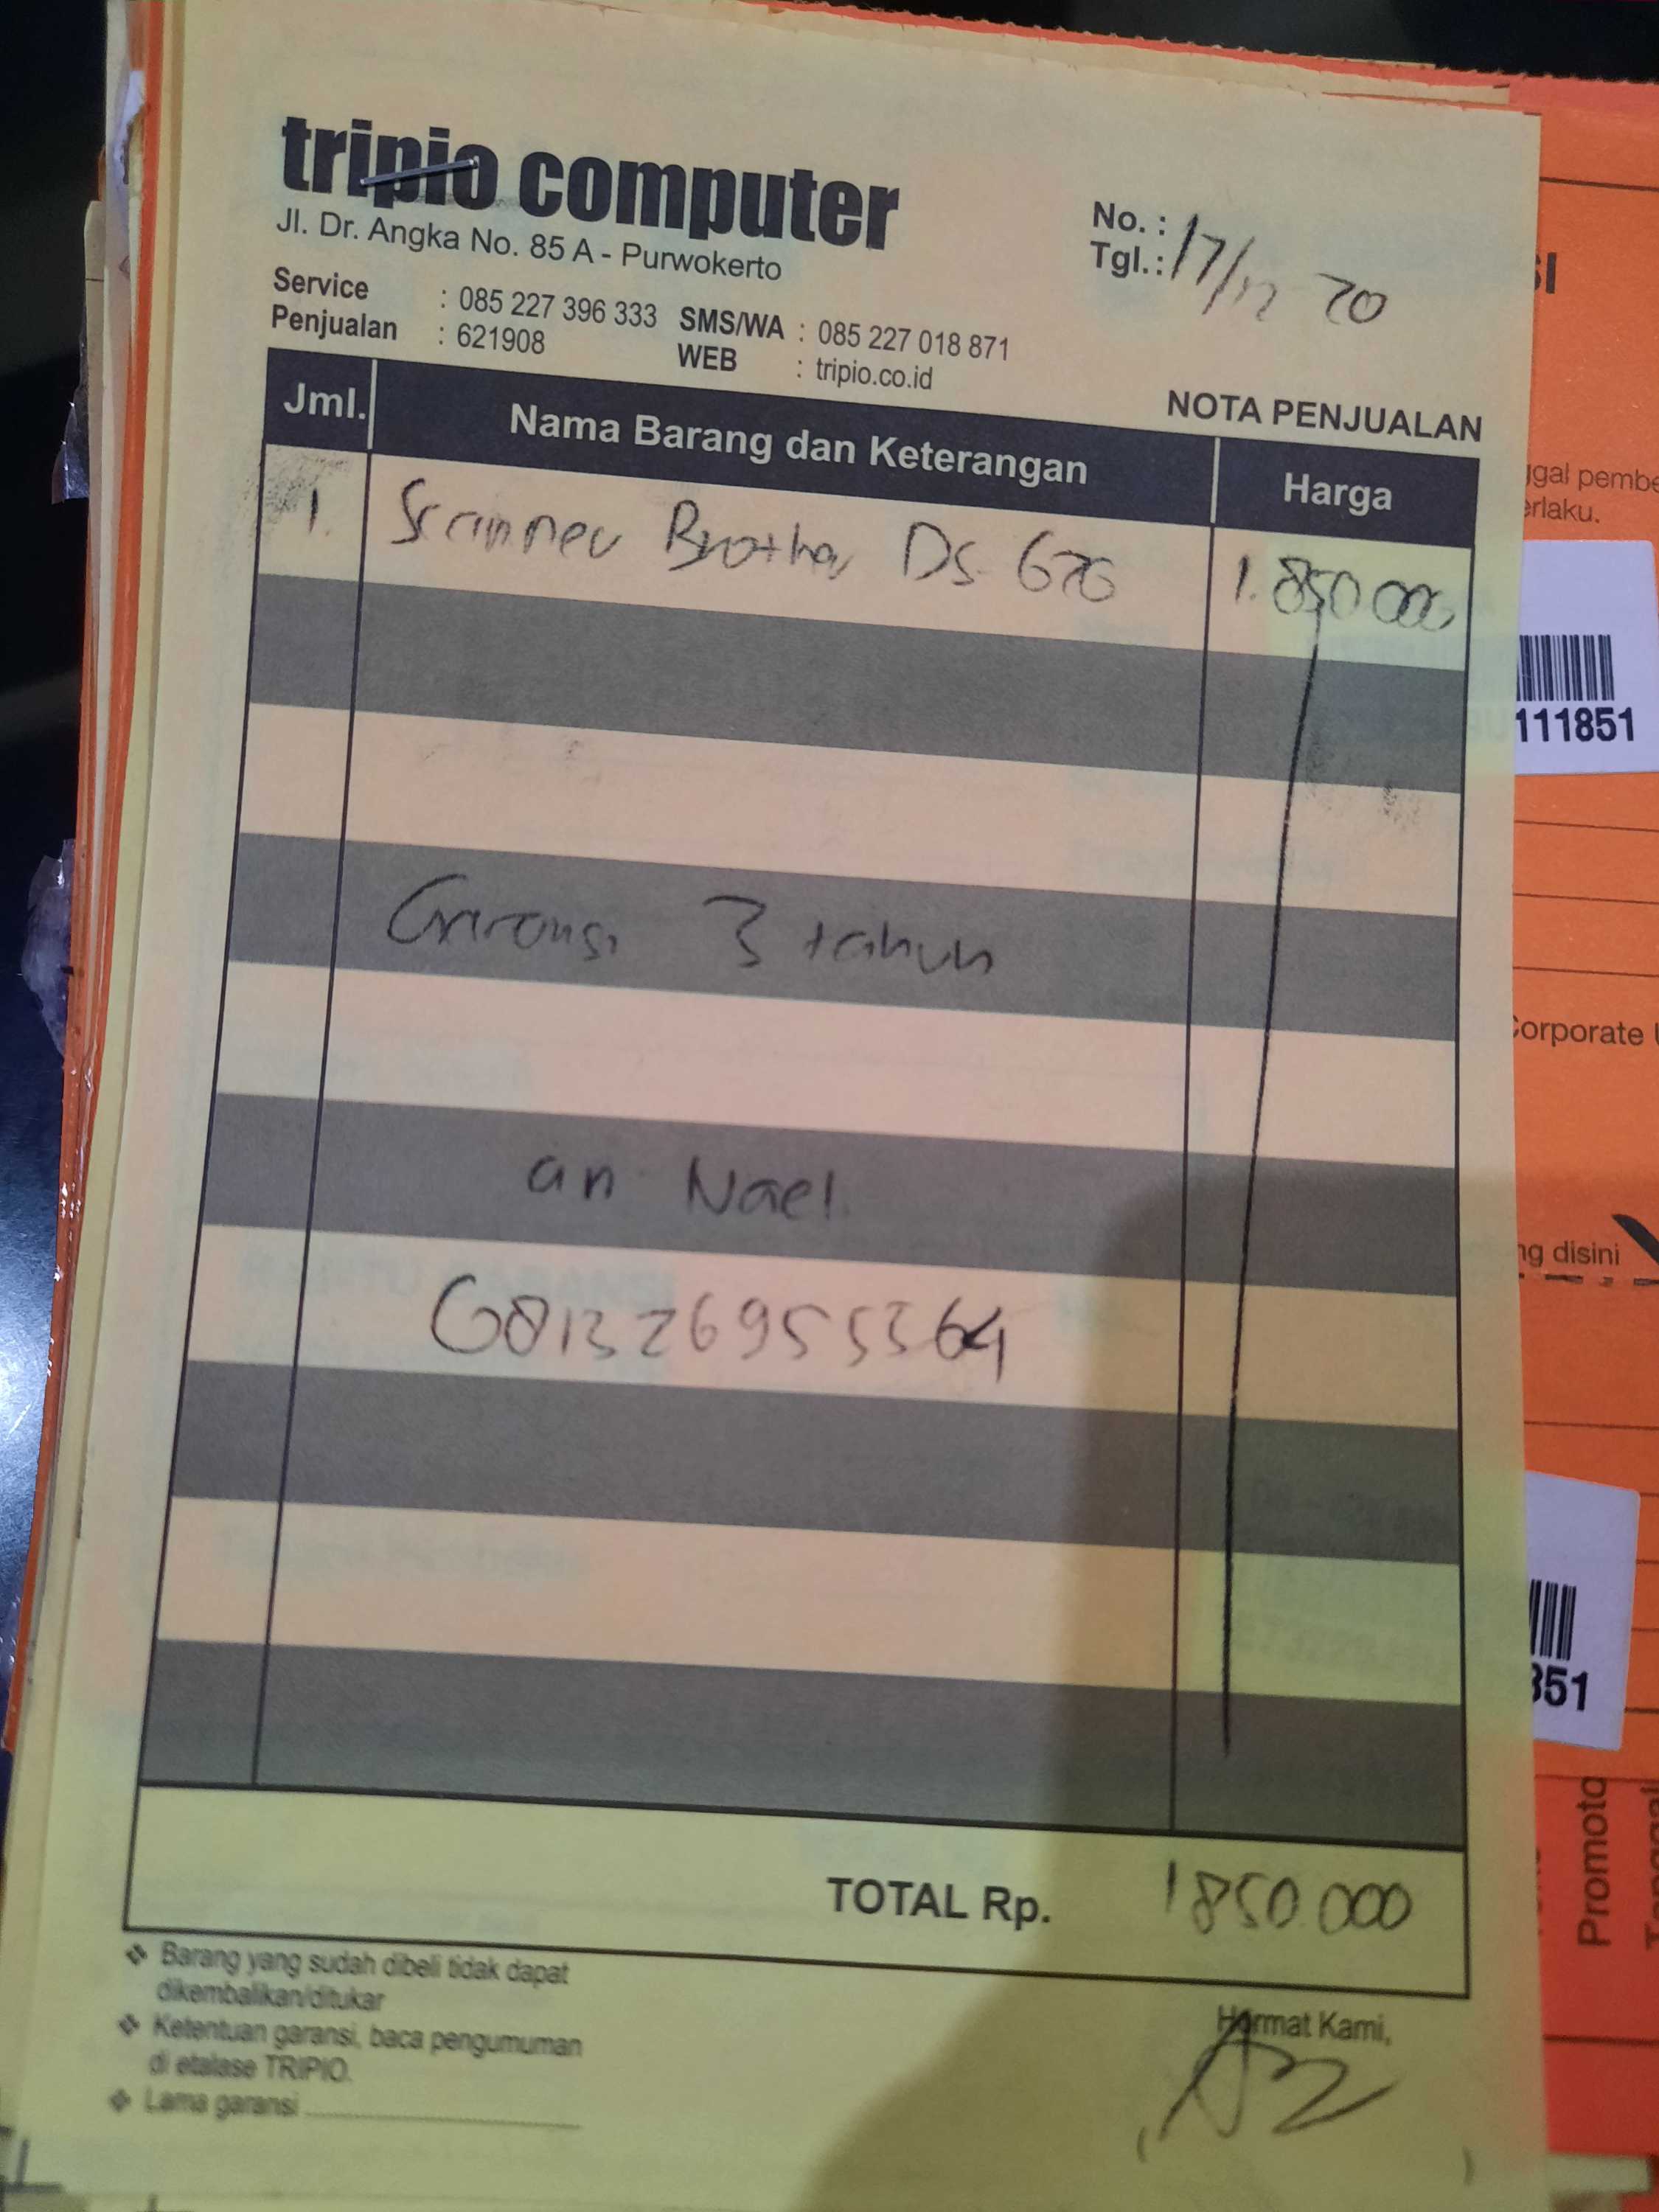 tripio computer
Jl. Dr. Angka No. 85 A - Purwokerto
Service : 085 227 396 333 SMS/WA : 085 227 018 871
Penjualan : 621908 WEB : tripio.co.id
No. :
Tgl. : 17/12 20
NOTA PENJUALAN
Jml. Nama Barang dan Keterangan Harga
1. Scanner Brother DS 620 1.850.000
Garansi 3 tahun
an Nael
081326955364
TOTAL Rp. 1850.000
Barang yang sudah dibeli tidak dapat
dikembalikan/ditukar
Ketentuan garansi, baca pengumuman
di etalase TRIPIO.
Lama garansi
Hormat Kami,
erlaku.
111851
Corporate
disini
851
Promoto